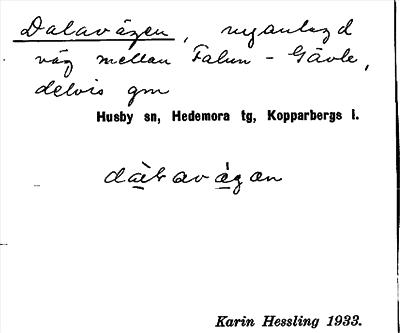 Dalavägen, nyanlagd
väg mellan Falun - Gävle,
delvis gm
Husby sn, Hedemora tg, Kopparbergs l.
Karin Hessling 1933.